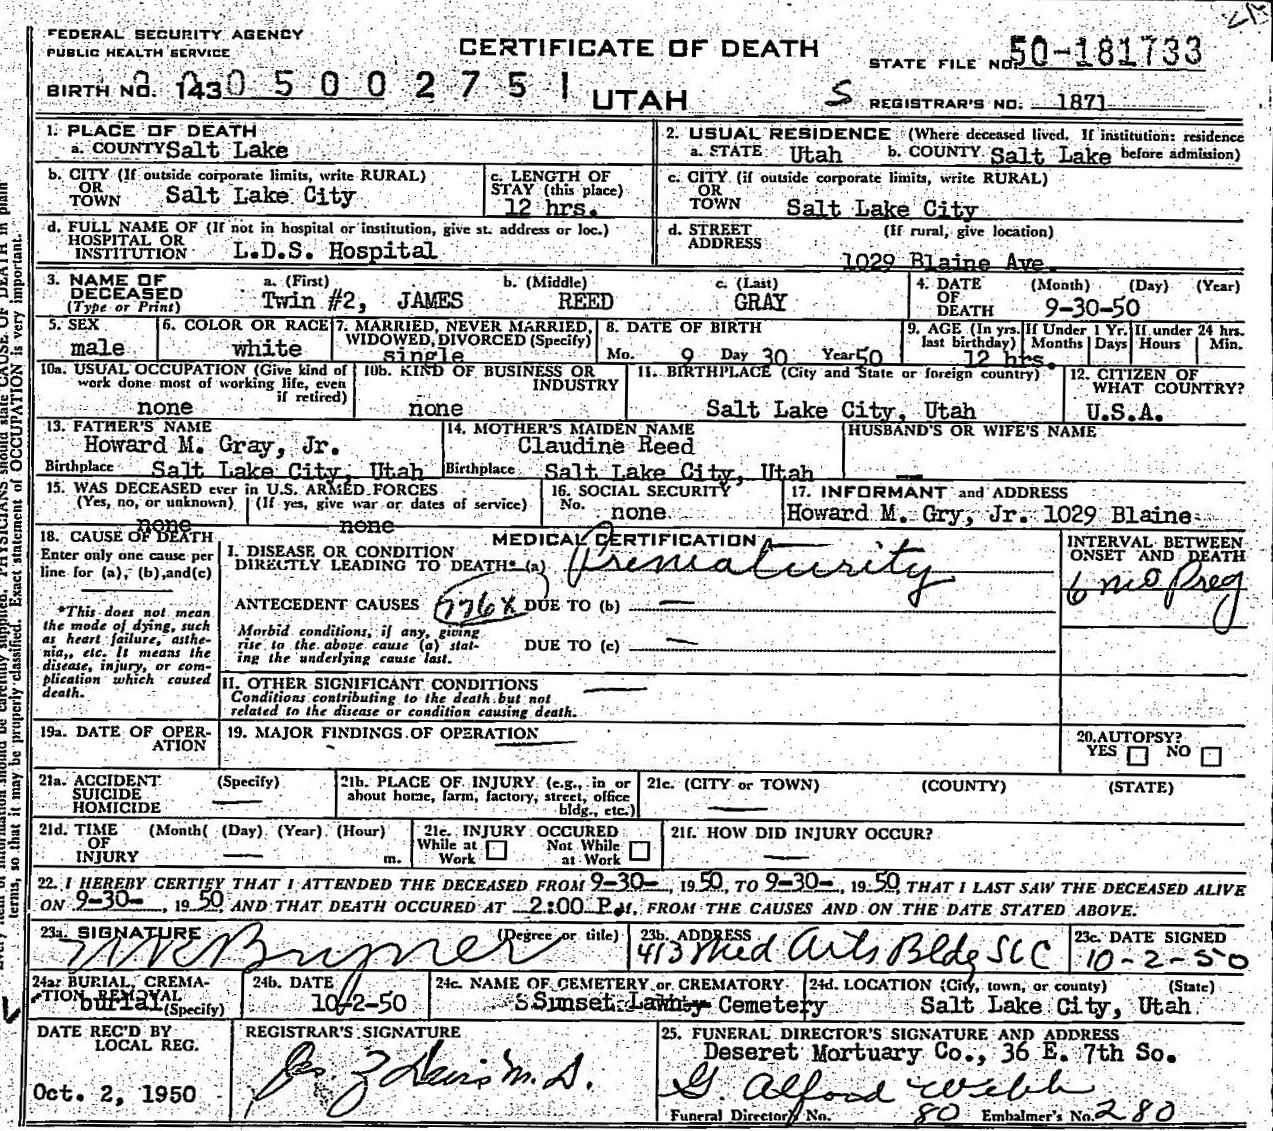 FEDERAL SECURITY AGENCY
PUBLIC HEALTH SERVICE
CERTIFICATE OF DEATH
STATE FILE NO. 50-181733
BIRTH NO. 143 0 5 0 0 2 7 5 1
UTAH
S REGISTRAR'S NO. 1871
1. PLACE OF DEATH
a. COUNTY Salt Lake
2. USUAL RESIDENCE (Where deceased lived. If institution: residence before admission)
a. STATE Utah b. COUNTY Salt Lake
b. CITY (If outside corporate limits, write RURAL)
OR
TOWN Salt Lake City
c. LENGTH OF
STAY (this place)
12 hrs.
c. CITY (if outside corporate limits, write RURAL)
OR
TOWN Salt Lake City
d. FULL NAME OF (If not in hospital or institution, give st. address or loc.)
HOSPITAL OR
INSTITUTION L.D.S. Hospital
d. STREET (If rural, give location)
ADDRESS
1029 Blaine Ave.
3. NAME OF
DECEASED
(Type or Print)
a. (First) b. (Middle) c. (Last)
Twin #2, JAMES REED GRAY
4. DATE (Month) (Day) (Year)
OF
DEATH 9-30-50
5. SEX
male
6. COLOR OR RACE
white
7. MARRIED, NEVER MARRIED,
WIDOWED, DIVORCED (Specify)
single
8. DATE OF BIRTH
Mo. 9 Day 30 Year 50
9. AGE (In yrs. last birthday)
If Under 1 Yr. Months Days
If under 24 hrs. Hours Min.
12 hrs.
10a. USUAL OCCUPATION (Give kind of
work done most of working life, even
if retired)
none
10b. KIND OF BUSINESS OR
INDUSTRY
none
11. BIRTHPLACE (City and State or foreign country)
Salt Lake City, Utah
12. CITIZEN OF
WHAT COUNTRY?
U.S.A.
13. FATHER'S NAME
Howard M. Gray, Jr.
Birthplace Salt Lake City, Utah
14. MOTHER'S MAIDEN NAME
Claudine Reed
Birthplace Salt Lake City, Utah
HUSBAND'S OR WIFE'S NAME
15. WAS DECEASED ever in U.S. ARMED FORCES
(Yes, no, or unknown) (If yes, give war or dates of service)
none none
16. SOCIAL SECURITY
No. none
17. INFORMANT and ADDRESS
Howard M. Gry, Jr. 1029 Blaine
18. CAUSE OF DEATH
Enter only one cause per
line for (a), (b), and (c)
*This does not mean
the mode of dying, such
as heart failure, asthe-
nia, etc. It means the
disease, injury, or com-
plication which caused
death.
MEDICAL CERTIFICATION
I. DISEASE OR CONDITION
DIRECTLY LEADING TO DEATH* (a) Prematurity
ANTECEDENT CAUSES 776X DUE TO (b) —
Morbid conditions, if any, giving
rise to the above cause (a) stat-
ing the underlying cause last.
DUE TO (c) —
II. OTHER SIGNIFICANT CONDITIONS —
Conditions contributing to the death but not
related to the disease or condition causing death.
INTERVAL BETWEEN
ONSET AND DEATH
6 mo Preg
19a. DATE OF OPER-
ATION
19. MAJOR FINDINGS OF OPERATION
20. AUTOPSY?
YES NO
21a. ACCIDENT (Specify)
SUICIDE
HOMICIDE
21b. PLACE OF INJURY (e.g., in or
about home, farm, factory, street, office
bldg., etc.)
21c. (CITY or TOWN) (COUNTY) (STATE)
21d. TIME (Month) (Day) (Year) (Hour)
OF
INJURY m.
21e. INJURY OCCURED
While at Work Not While at Work
21f. HOW DID INJURY OCCUR?
22. I HEREBY CERTIFY THAT I ATTENDED THE DECEASED FROM 9-30-, 19 50, TO 9-30-, 19 50, THAT I LAST SAW THE DECEASED ALIVE
ON 9-30-, 19 50 AND THAT DEATH OCCURED AT 2:00 P.M., FROM THE CAUSES AND ON THE DATE STATED ABOVE.
23a. SIGNATURE (Degree or title)
23b. ADDRESS
413 Med Arts Bldg SLC
23c. DATE SIGNED
10-2-50
24a. BURIAL, CREMA-
TION REMOVAL
burial (Specify)
24b. DATE
10-2-50
24c. NAME OF CEMETERY OR CREMATORY
Sunset Lawn Cemetery
24d. LOCATION (City, town, or county) (State)
Salt Lake City, Utah
DATE REC'D BY
LOCAL REG.
Oct. 2, 1950
REGISTRAR'S SIGNATURE
25. FUNERAL DIRECTOR'S SIGNATURE AND ADDRESS
Deseret Mortuary Co., 36 E. 7th So.
G. Alford Webb
Funeral Director No. 80 Embalmer's No. 280